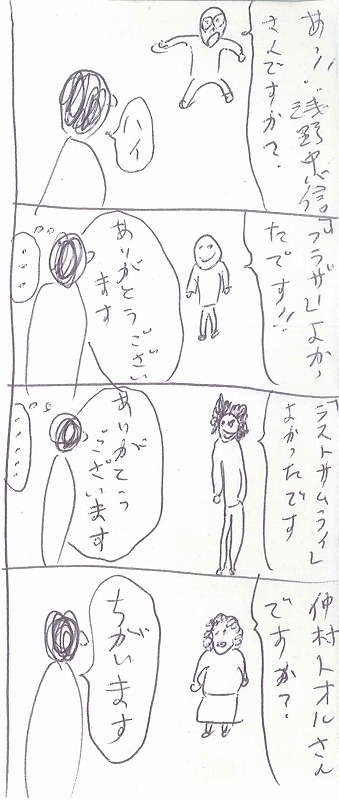 あっ!!浅野忠信
さんですか?
ハイ
『ブラザー』よかっ
たです!!
ありがとうござい
ます
・・・
『ラストサムライ』
よかったです
ありがとう
ございます
・・・・・
仲村トオルさん
ですか?
ちがいます